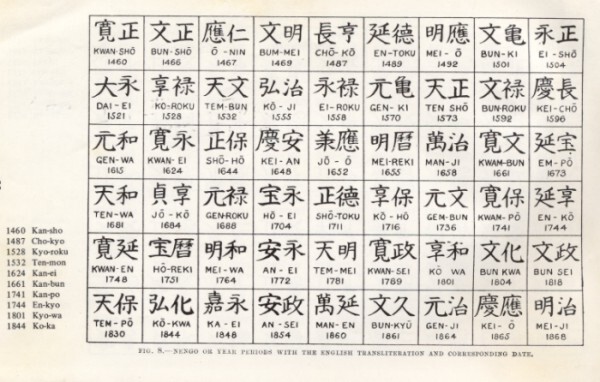 寛正 文正 應仁 文明 長亨 延德 明應 文亀 永正
KWAN-SHŌ BUN-SHŌ Ō-NIN BUM-MEI CHŌ-KŌ EN-TOKU MEI-Ō BUN-KI EI-SHŌ
1460 1466 1467 1469 1487 1489 1492 1501 1504
大永 享禄 天文 弘治 永禄 元亀 天正 文禄 慶長
DAI-EI KO-ROKU TEM-BUN KŌ-JI EI-ROKU GEN-KI TEN SHŌ BUN-ROKU KEI-CHŌ
1521 1528 1532 1555 1558 1570 1573 1592 1596
元和 寛永 正保 慶安 兼應 明暦 萬治 寛文 延宝
GEN-WA KWAN-EI SHŌ-HŌ KEI-AN JŌ-Ō MEI-REKI MAN-JI KWAM-BUN EM-PŌ
1615 1624 1644 1648 1652 1655 1658 1661 1673
天和 貞享 元禄 宝永 正德 享保 元文 寛保 延享
TEN-WA JŌ-KŌ GEN-ROKU HŌ-EI SHŌ-TOKU KŌ-HŌ GEM-BUN KWAM-PŌ EN-KŌ
1681 1684 1688 1704 1711 1716 1736 1741 1744
寛延 宝暦 明和 安永 天明 寛政 享和 文化 文政
KWAN-EN HŌ-REKI MEI-WA AN-EI TEM-MEI KWAN-SEI KŌ WA BUN KWA BUN SEI
1748 1751 1764 1772 1781 1789 1801 1804 1818
天保 弘化 嘉永 安政 萬延 文久 元治 慶應 明治
TEM-PŌ KŌ-KWA KA-EI AN-SEI MAN-EN BUN-KYŪ GEN-JI KEI-Ō MEI-JI
1830 1844 1848 1854 1860 1861 1864 1865 1868
1460 Kan-sho
1487 Cho-kyo
1528 Kyo-roku
1532 Ten-mon
1624 Kan-ei
1661 Kan-bun
1741 Kan-po
1744 En-kyo
1801 Kyo-wa
1844 Ko-ka
FIG. 8.—NENGO OR YEAR PERIODS WITH THE ENGLISH TRANSLITERATION AND CORRESPONDING DATE.